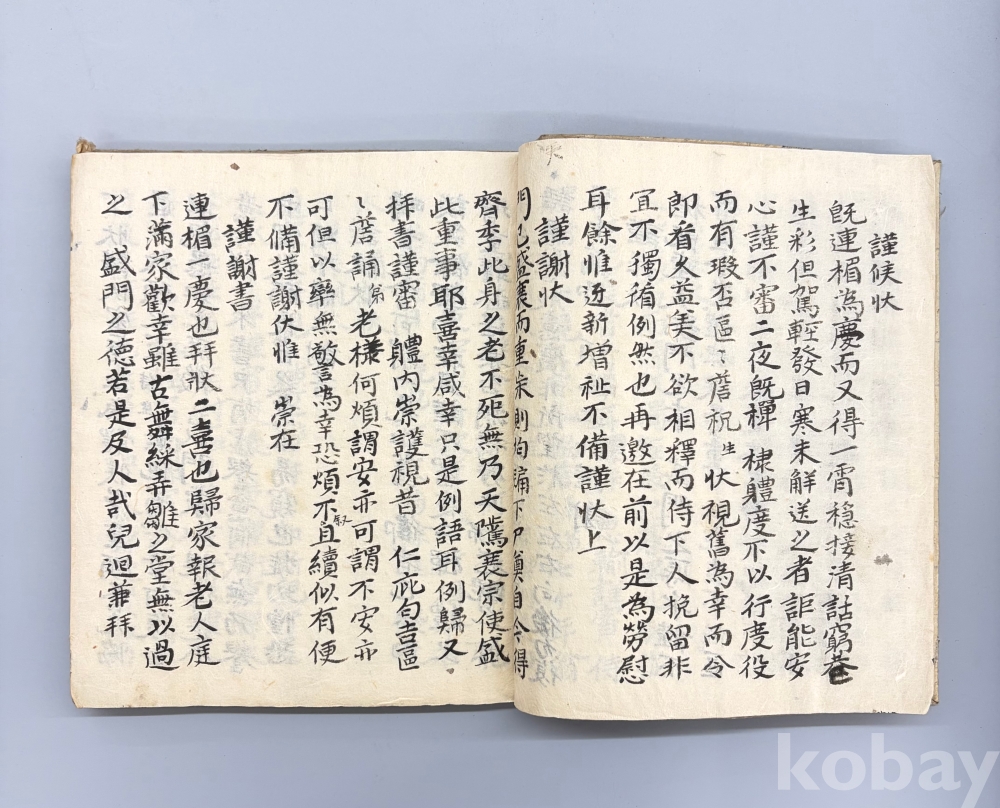 謹候狀
旣連楣為慶而又得一霄穩接淸話窮巷
生彩但駕輕發日寒未解送之者詎能安
心謹不審二夜旣禪 棣軆度不以行度役
而有瑕否區〻蘑祝生狀視舊為幸而令
即看火益美不欲相釋而侍下人挽留非
宜不獨循例然也再邀在前以是為勞慰
耳餘惟近新增祉不備謹狀上
謹謝狀
門已盛
而重
則
下
自今得
齊李此身之老不死無乃天隲衰宗使盛
此重事耶喜幸咸幸只是例語耳例歸又
拜書謹審 軆內崇護視昔 仁庇句吉區
〻蘑誦弟狀老樣何煩謂安亦可謂不安亦
可但以藥無敬言為幸恐煩不自敍續似有便
不備謹謝伏惟 崇在
謹謝書
連楣一慶也拜狀二喜也歸家報老人庭
下滿家歡幸雖古舞綵弄雛之堂無以過
之 盛門之德若是及人哉兒迴兼拜
kobay